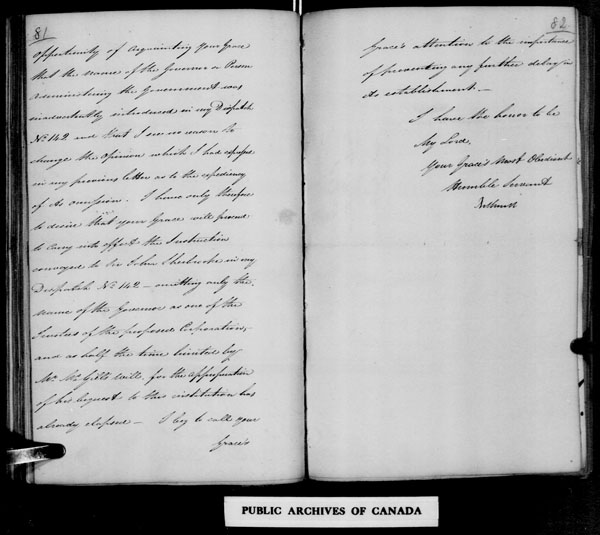 81
opportunity of acquainting your Grace
that the name of the Governor or Person
administering the Government was
inadvertently introduced in my Despatch
No. 142 and that I see no reason to
change the opinion which I had expressed
in my previous letter as to the expediency
of its omission. I have only therefore
to desire that your Grace will proceed
to carry into effect the Instruction
conveyed to Sir John Sherbrooke in my
Despatch No. 142 — omitting only the
name of the Governor as one of the
Trustees of the proposed Corporation,
and as half the time limited by
Mr. McGill's Will, for the appropriation
of his bequest to this institution has
already elapsed — I beg to call your
Grace's
82
Grace's attention to the importance
of preventing any further delay in
its establishment. —
I have the honor to be
My Lord,
Your Grace's Most Obedient
Humble Servant
Bathurst
PUBLIC ARCHIVES OF CANADA